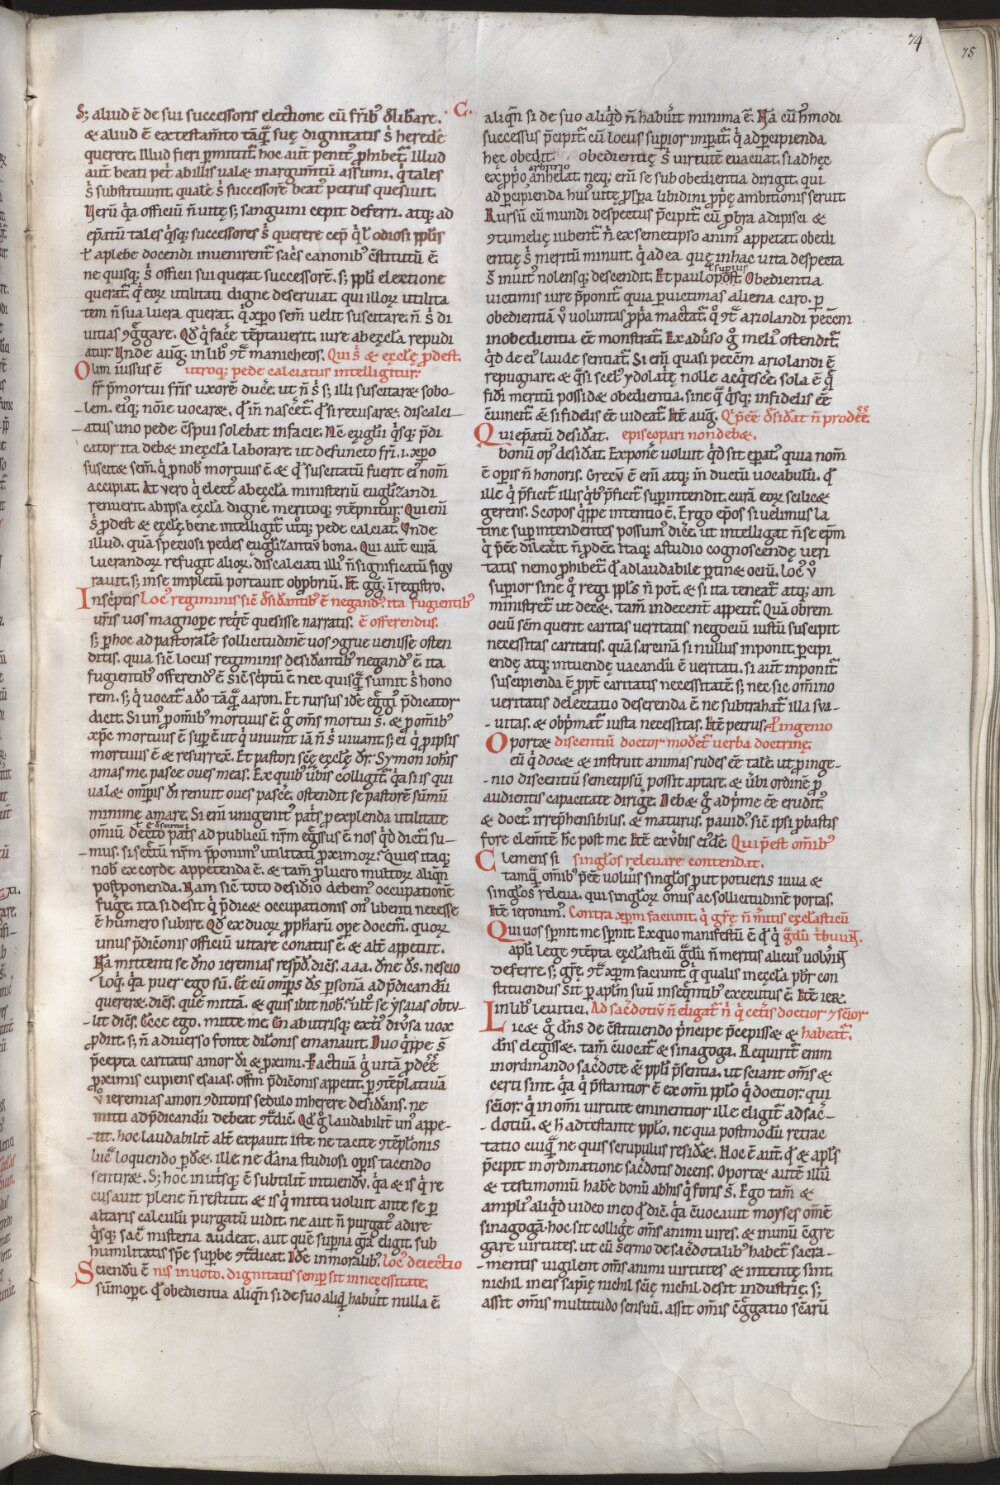 74
75
S; aliud ē de sui successoris electione cū fr̄ib' d̄lib̄are. C.
& aliud ē ex testam̄to tāq̄ suę dignitatis s̄ herede
querere. Illud fieri ꝑmittit̄. hoc aut̄ penit' ꝓhibet̄. Illud
aut̄ beati pet̄
s̄ substituunt. quale s̄ successorē beat' petrus quesiuit.
Verū q̄a officiū
ep̄atū tales q̄sq; successores s̄ querere cep̄
ł aplebe docendi inuenirent̄ sac̄s canonib' c̄stitutū ē.
ne quisq; s̄ officii sui querat successorē. s; ppl̄i electione
querat̄. q̄ eoꝝ utilitati digne deseruiat. qui illoꝝ utilita
tem n̄ sua lucra querat. q̄ xp̄o sem̄ velit suscitare. n̄ s̄ di
uitias ɔg̃gare. Qd̄ q̄ fac̄e tēptauerit. iure abęcc̄la repudi
atur. Vnde aug̃. in lib̄o ɔt̄ manicheos. Qui s̄ & ęccl̄ę ꝓdest.
Olim iussus ē utroq; pede calciatus intelligitur.
fr̄ p̄mortui fr̄nis uxorē duc̄e. ut n̄ s̄ s; illi suscitare sobo-
lem. eiq; nōie uocare. q̄ in nascet̄. q̄ si recusare. discalci
atus uno pede c̄spui solebat in facie. Nē euḡl̄ii q̄sq; p̄di
cator ita debe in ęccl̄a laborare. ut defuncto fr̄i .i. xp̄o
suscite sem̄. q̄ ꝓ nob̄ mortuus ē & q̄ suscitatū fuerit ei' nom̄
accipiat. At vero q̄ elect' ab ęccl̄a ministeriū euḡl̄izandi
renuerit. ab ipsa ęccl̄a digne meritoq; ɔtēpnitur. Qui eni
s̄ ꝓdest & ęccl̄ę. bene intelligit̄ utq; pede calciat'. Vnde
illud. quā speciosi pedes euḡl̄izantiū bona. Qui aut̄ curā
lucrandoꝝ refugit alioꝝ. discalciati illi' n̄ significatū figu
rauit. s; in se impletū portauit obꝓbriū. Itē gg̃. ī registro.
Inscriptis Loc' regiminis sic̄ d̄sid̄antib' ē negand'. ita fugientib'
ur̄is uos magnopere req̄re quesisse narratis. ē offerendus.
s; ꝑ hoc ad pastorale sollicitudinē uos ɔgrue uenisse osten
ditis. quia sic̄ locus regiminis desid̄antib' negand' ē ita
fugientib' offerend' ē. sic̄ sc̄ptū ē nec quisq̄ sumit s̄ hono
rem. s; q̄ uocat̄ a dō tāq̄ aaron. Et rursus idē eg̃gi' p̄dicator
dicit. Si un' ꝓ omib' mortuus ē. g̊ om̄s mortui s̄. & ꝓ omib'
xp̄c mortuus ē. sup̄ ē ut q̄ uiuunt iā n̄ s̄ uiuant. s; ei q̄ ꝓ ipsis
mortuus ē & resurrex̄. Et pastori sc̄ę ęccl̄ę dr̄. Symon ioh̄is
amas me pasce oues meas. Ex quib' ūbis colligit̄. q̄a si is qui
uale om̄ipis d̄i renuit oues pasc̄e. ostendit se pastorē sūmū
minime amare. Si eni unigenit' pat̄s ꝑ explenda utilitate
omiū decreto pat̄s ad publicū nr̄m eg̃ssus ē nos q̄d dicti su-
mus. si secrtū nr̄m p̄ponim' utilitati ꝓximoꝝ? Quies itaq;
nob̄ ex corde appetenda ē. & tam̄ ꝓ lucro multoꝝ aliqn̄
postponenda. Nam sic̄ toto desid̄io debem' occupationē
fug̃e. ita si desit q̄ p̄dice occupationis on' libent̄ necesse
ē humero subire. Qd̄ ex duoꝝ ꝓph̄arū ope docem̄. quoꝝ
unus p̄dic̄onis officiū uitare conatus ē. & alt̄ appetiit.
Nā mittenti se d̄no ieremias resp̄d̄. dic̄es. a.a.a. dn̄e ds̄. nescio
loq̄. q̄a puer ego sū. Et cū om̄ips d̄s p̄sonā ad p̄dicandū
quereret. dic̄es. quē mittā. & quis ibit nob̄? ult̄ se ysaias obtu-
lit dic̄s. Ecce ego. mitte me. En ab utrisq; extī diu̇sa uox
ꝓdiit. s; n̄ a diuerso fonte dil̄onis emanauit. Duo q̄ippe s̄
p̄cepta caritatis amor d̄i & ꝓximi. Factiuā q̄ uitā ꝓdee
ꝓximis cupiens esaias. offm̄ p̄dic̄onis appetit. ꝑ ɔtēplatiuā
u̇ ieremias amori ɔditoris sedulo inherere desid̄ans. ne
mitti ad p̄dicandū debeat ɔt̄dic̄. Qd̄ g̊ laudabilit̄ un' appe-
tit. hoc laudabilit̄ alt̄ expauit. iste ne tacite ɔtēpl̄onis
luc̄ loquendo ꝑderet. ille. ne dāna studiosi opis tacendo
sentiret. S; hoc in utsq; ē subtilit̄ intuendū. q̄a & is q̄ re
cusauit plene n̄ restitit. & is q̄ mitti uoluit ante se ꝑ
altaris calculū purgatū uidit. ne aut n̄ purgat' adire
q̄sq; sac̄ misteria audeat. aut quē sup̄na gr̄a eligit. sub
humilitatis sp̄e supbe ɔt̄dicat. Idē in moralib'. loc' deiectio
Sciendū ē nis in uoto. dignitatis semp̄ sit in necessitate.
sūmope. q̄ obedientia aliqn̄ si de suo aliqd̄ habūit nulla ē.
aliqn̄ si de suo aliq̄d n̄ habūit minima ē. Nā cū hui'modi
successus p̄cipit̄. cū locus supior impat̄. q̄ ad ꝑcipienda
hęc obedit obedientię s̄ uirtutē euacuat. si ad hęc
ex ꝓprio arbitrio anhelat. neq; eni se sub obedientia dirigit. qui
ad ꝑcipienda hui' uite ꝓspa libidini ꝓprię ambitionis seruit.
Rursū cū mundi despectus p̄cipit̄. cū ꝓbra adipisci &
ɔtumelię iubent̄. n̄ ex semetipso anim' appetat. obedi
entię s̄ meritū minuit. q̄ ad ea quę in hac uita despecta
s̄ inuit' nolensq; descendit. Et paulo supius post. Obedientia
uictimis iure p̄ponit̄. quia ꝑ uictimas aliena caro. ꝑ
obedientiā u̇ voluntas ꝓpria mactat̄. q̄' ɔt̄ ariolandi pcc̄m
inobedientia ēē monstrat̄. Ex adu̇so g̊ meli' ostendit̄.
q̄d de ei' laude sentiat̄. Si eni quasi pccm̄ ariolandi ē
repugnare. & q̄si scel' ydolat̄ę nolle acq̄esce. sola ē q̄
fidei meritū possidet obedientia. sine q̄ q̄sq; infidelis ēē
ɔuincit̄. & si fidelis ēē uideat̄. Itē aug̃. Q' p̄ēē d̄sid̄at n̄ ꝓdēē.
Qui ep̄atū desid̄at. episcopari non debet.
bonū op' desid̄at. Exponē uoluit q̄d sit ep̄at'. quia nom̄
ē opis n̄ honoris. Grecū ē eni atq; in ductū uocabulū. q̄
ille q̄ p̄ficit̄ illis q̄b' p̄ficit̄ supintendit. curā eoꝝ scilicet
gerens. Scopos q̄ippe intentio ē. Ergo ep̄os si uelimus la
tine supintendentes possum' dic̄e. ut intelligat n̄ se ep̄m
q̄ p̄ēē dilex̄it n̄ ꝓdēē. itaq; a studio cognoscendę ueri
tatis nemo ꝓhibet̄. q̄ ad laudabile ꝑtinet ociū. Loc' u̇
supior sine q̄ regi ppl̄s n̄ pot̄. & si ita teneat̄ atq; am
ministret̄ ut decet. tam̄ indecent̄ appetit̄. Quā obrem
ociū sc̄m querit caritas veritatis negociū iustū suscipit
necessitas caritatis. quā sarcinā si nullus inponit. ꝑcipi
endę atq; intuendę uacandū ē ueritati. si aut̄ inponit̄
suscipienda ē ꝓpt̄ caritatis necessitatē. s; nec sic om̄ino
ueritatis delectatio deserenda ē ne subtrahat̄ illa sua-
uitas. & obp̄mat̄ iusta necessitas. Itē petrus. Pro ingenio
Oportet discentiū doctor modet̄ verba doctrinę.
eū q̄ docet & instruit animas rudes ēē tale. ut ꝓ inge-
nio discentiū semetipsū possit aptare. & ūbi ordinē ꝓ
audientis capacitate dirig̃e. Debet g̊ ad p̄me ēē erudit'
& doct'. irrep̄hensibilis. & maturus. pauid'. sic̄ ipsi ꝓbastis
fore clem̄tē hc̄ post me. Itē ex v̄bis ei'de. Qui p̄est om̄ib'
Clemens si singl̄os releuare contendat.
tamq̄ omib' p̄ēē uoluis singl̄os ꝓut potueris iuua &
singl̄os releua. qui singloꝝ onus ac sollicitudinē portas.
Itē ieronim'. Contra xp̄m faciunt. q̄ gr̄ę n̄ m̄itis ęccl̄asticū
Qui uos spnit. me spnit. Ex quo manifestū ē q̄ q̄ g̃dū t̄buūt.
apl̄i lege ɔtēpta ęccl̄asticū g̃dū n̄ meritis alicui' uoluīt
deferre s; gr̄ę. ɔt̄ xp̄m faciunt. q̄ qualis in ęccl̄a pb̄r con
stituendus sit ꝑ apl̄m suū insequentib' executus ē. Itē ieR.
In lib̄o leuitici. Ad sac̄dotiū n̄ eligat̄ n̄ q̄ cet̄is doctior & sc̄ior
Licet g̊ dn̄s de c̄stituendo p̄ncipe p̄cepisset & habeat̄.
dn̄s elegisset. tam̄ c̄uocat̄ & sinagoga. Requirit̄ enim
in ordinando sac̄dote & ppl̄i p̄sentia. ut sciant om̄s &
certi sint. q̄a q̄ p̄stantior ē ex om̄i ppl̄o q̄ doctior. qui
sc̄ior. q̄ in om̄i uirtute eminentior ille eligit̄ ad sac̄-
dotiū. & h̄ ad testante ppl̄o. ne qua postmodū retrac
tatio cuiq̄ ne quis scrupulus resid̄e. Hoc ē aut̄. q̄ & apl̄s
p̄cipit in ordinatione sac̄dotis dicens. Oportet autē illū
& testimoniū hab̄e bonū ab his q̄ foris s̄. Ego tam̄ &
ampli' aliq̄d uideo in eo q̄ dic̄. q̄a c̄uocauit moyses om̄ē
sinagogā. hoc sit collig̃e om̄s animi uires. & in unū ɔgre
gare uirtutes. ut cū sermo de sac̄dotalib' habet̄ sacra-
mentis uigilent om̄s animi uirtutes & intentę sint.
nichil in eis sapię nichil scīę nichil desit industrię. s;
assit om̄is multitudo sensuū. assit om̄is ɔg̃gatio sc̄arū